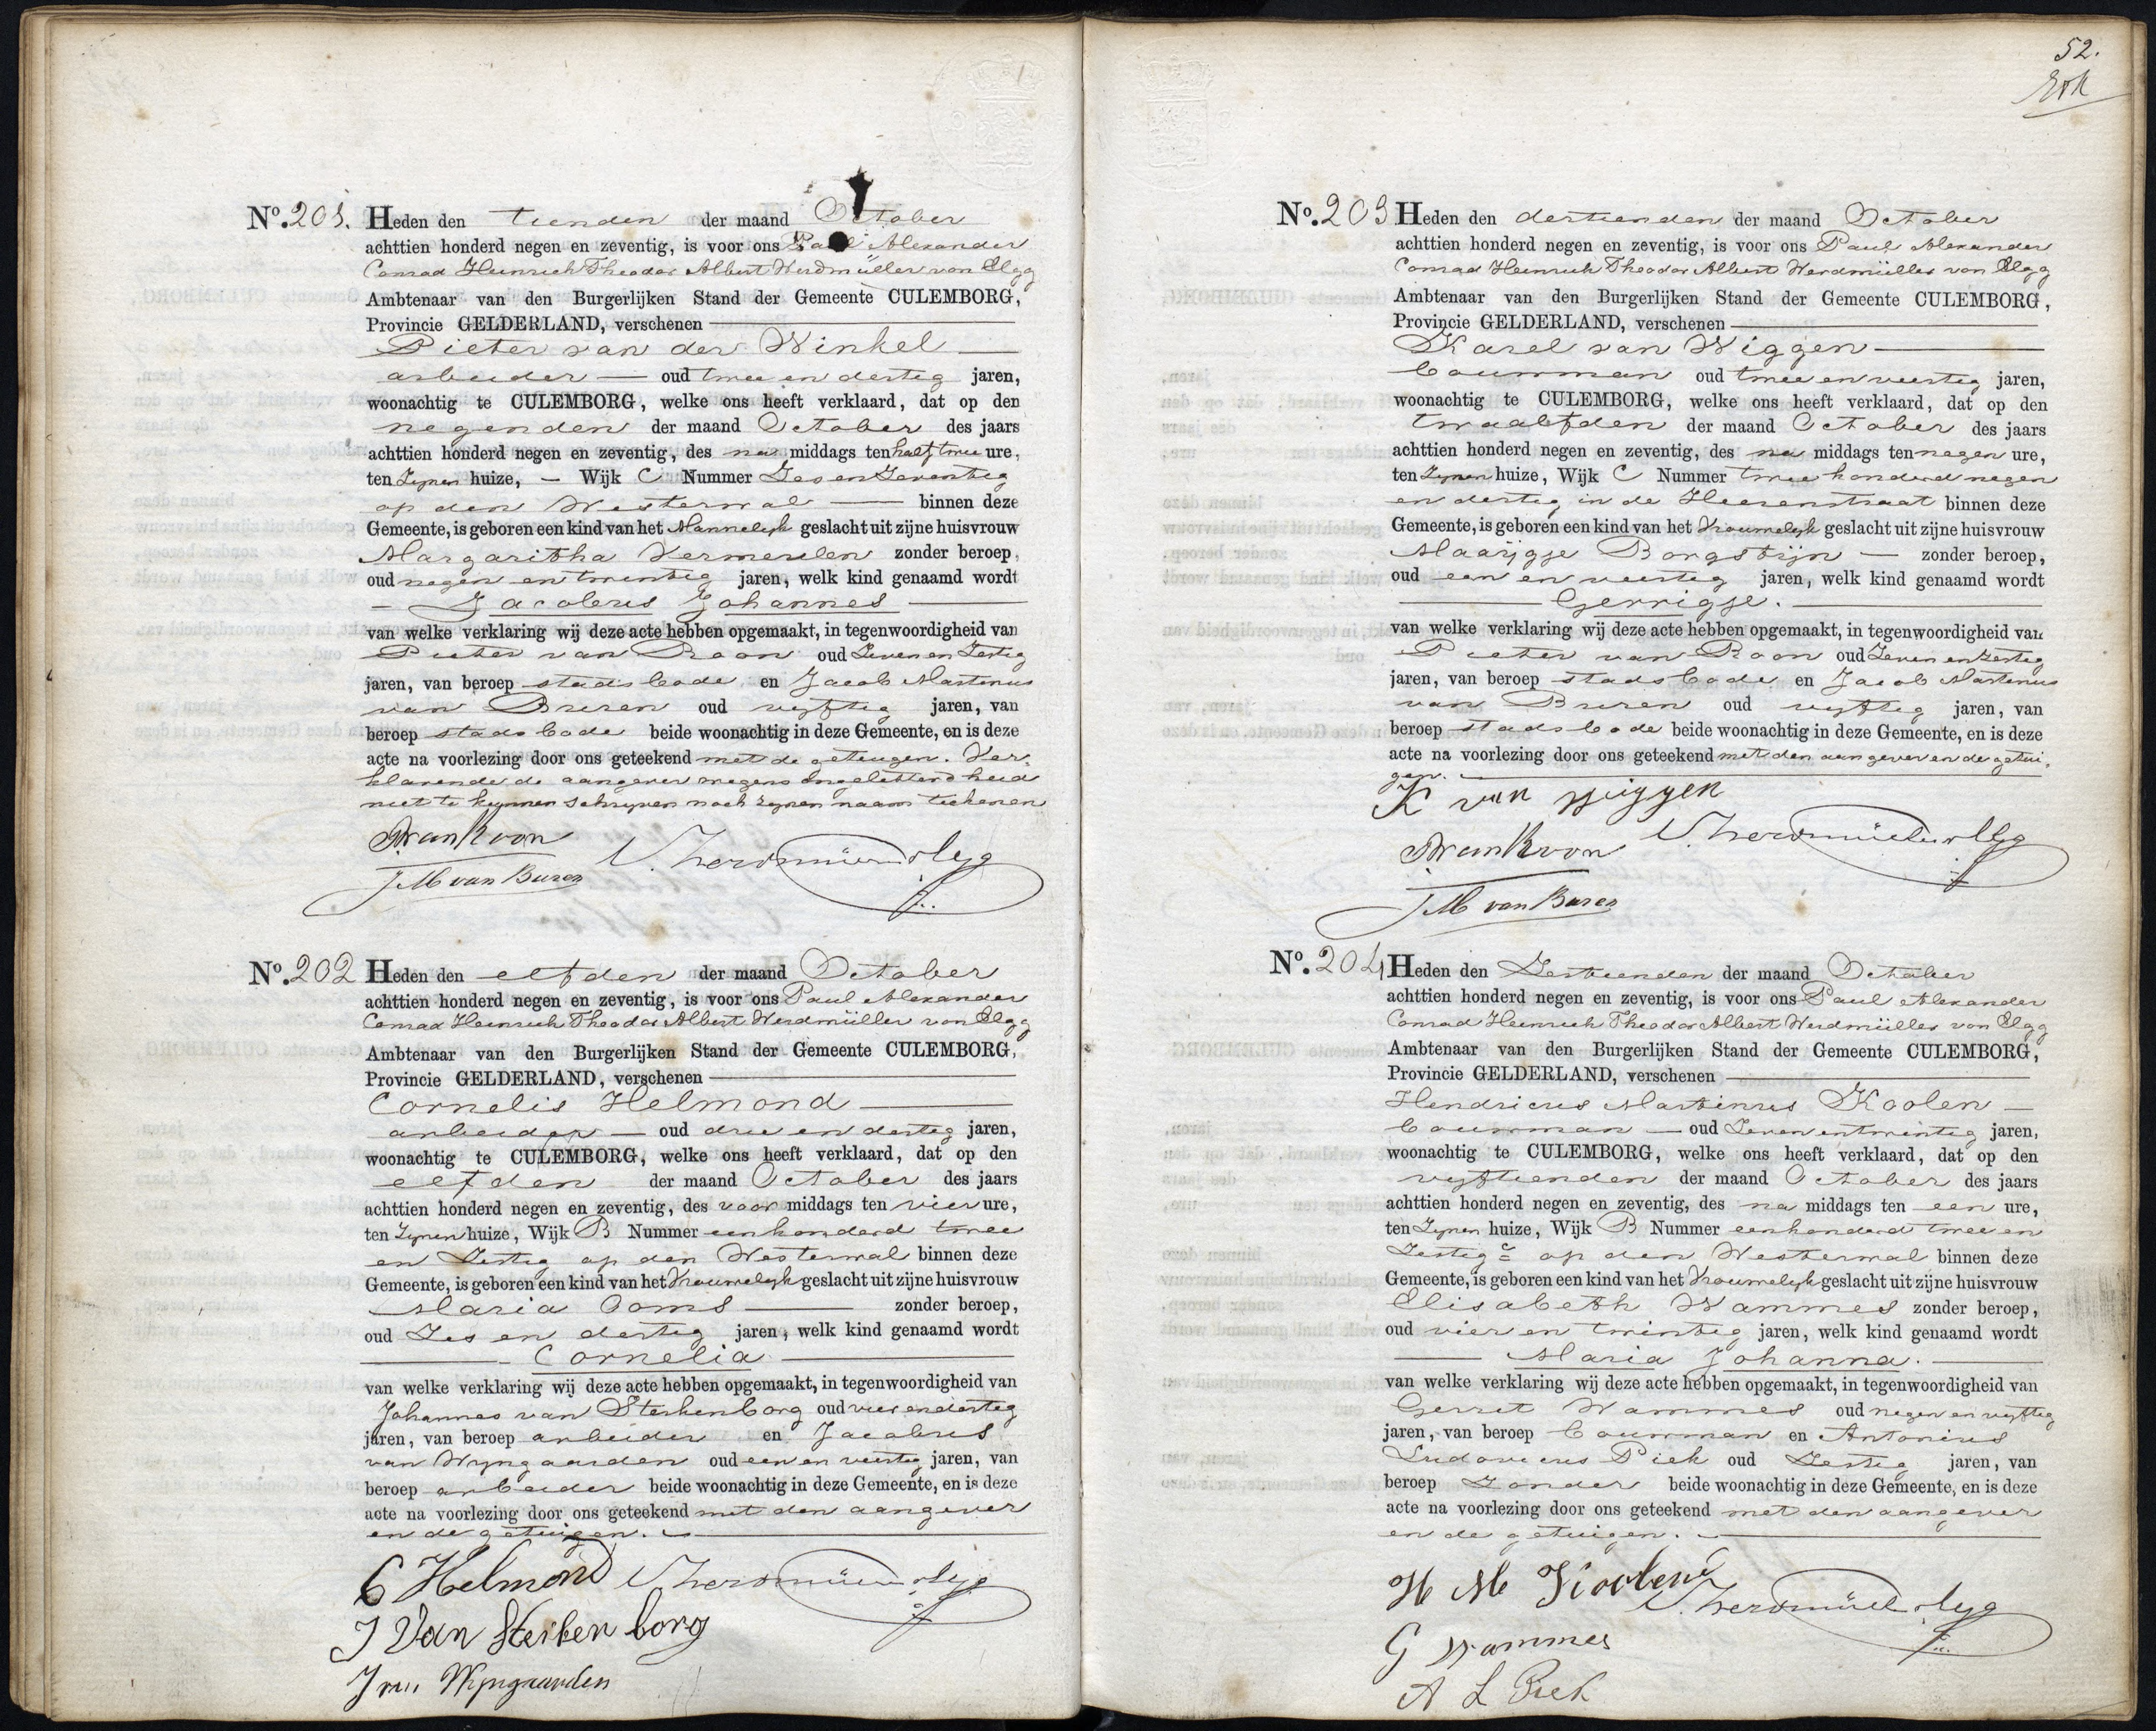 No. 201. Heden den tienden der maand October
achttien honderd negen en zeventig, is voor ons Paul Alexander
Conrad Heinrich Theodor Albert Werdmüller von Elgg
Ambtenaar van den Burgerlijken Stand der Gemeente CULEMBORG,
Provincie GELDERLAND, verschenen
Pieter van der Winkel
arbeider oud twee en dertig jaren,
woonachtig te CULEMBORG, welke ons heeft verklaard, dat op den
negenden der maand October des jaars
achttien honderd negen en zeventig, des na middags ten half twee ure,
ten zynen huize, Wijk C Nummer Zes en Zeventig
op den Westerwal binnen deze
Gemeente, is geboren een kind van het Mannelyk geslacht uit zijne huisvrouw
Margaritha Vermeulen zonder beroep,
oud negen en twintig jaren, welk kind genaamd wordt
Jacobus Johannes
van welke verklaring wij deze acte hebben opgemaakt, in tegenwoordigheid van
Pieter van Roon oud Zeven en Zestig
jaren, van beroep stadsbode en Jacob Martinus
van Buren oud vyftig jaren, van
beroep stadsbode beide woonachtig in deze Gemeente, en is deze
acte na voorlezing door ons geteekend met de getuigen. Ver=
klarende de aangever wegens ongeletterdheid
niet te kunnen schryven noch zynen naam teekenen
P van Roon
J M van Buren
No. 202 Heden den elfden der maand October
achttien honderd negen en zeventig, is voor ons Paul Alexander
Conrad Heinrich Theodor Albert Werdmüller von Elgg
Ambtenaar van den Burgerlijken Stand der Gemeente CULEMBORG,
Provincie GELDERLAND, verschenen
Cornelis Helmond
arbeider oud drie en dertig jaren,
woonachtig te CULEMBORG, welke ons heeft verklaard, dat op den
elfden der maand October des jaars
achttien honderd negen en zeventig, des voor middags ten vier ure,
ten Zynen huize, Wijk B Nummer eenhonderd twee
en Zestig op den Westerwal binnen deze
Gemeente, is geboren een kind van het Vrouwelyk geslacht uit zijne huisvrouw
Maria Ooms zonder beroep,
oud Zes en dertig jaren, welk kind genaamd wordt
Cornelia
van welke verklaring wij deze acte hebben opgemaakt, in tegenwoordigheid van
Johannes van Sterkenborg oud vier en dertig
jaren, van beroep arbeider en Jacobus
van Wyngaarden oud een en veertig jaren, van
beroep arbeider beide woonachtig in deze Gemeente, en is deze
acte na voorlezing door ons geteekend met den aangever
en de getuigen.
C Helmond
J Van Sterken borg
J van Wijngaarden
52.
No. 203 Heden den dertienden der maand October
achttien honderd negen en zeventig, is voor ons Paul Alexander
Conrad Heinrich Theodor Albert Werdmüller von Elgg
Ambtenaar van den Burgerlijken Stand der Gemeente CULEMBORG,
Provincie GELDERLAND, verschenen
Karel van Wiggen
bouwman oud twee en veertig jaren,
woonachtig te CULEMBORG, welke ons heeft verklaard, dat op den
twaalfden der maand October des jaars
achttien honderd negen en zeventig, des na middags ten negen ure,
ten Zynen huize, Wijk C Nummer twee honderd negen
en dertig in de Heerenstraat binnen deze
Gemeente, is geboren een kind van het Vrouwelyk geslacht uit zijne huisvrouw
Maarijgje Borgstijn zonder beroep,
oud een en veertig jaren, welk kind genaamd wordt
Gerrigje.
van welke verklaring wij deze acte hebben opgemaakt, in tegenwoordigheid van
Pieter van Roon oud Zeven en zestig
jaren, van beroep stadsbode en Jacob Martinus
van Buren oud vyftig jaren, van
beroep stadsbode beide woonachtig in deze Gemeente, en is deze
acte na voorlezing door ons geteekend met den aangever en de getui=
gen.
K van Wiggen
P van Roon
J M van Buren
No. 204 Heden den Zestienden der maand October
achttien honderd negen en zeventig, is voor ons Paul Alexander
Conrad Heinrich Theodor Albert Werdmüller von Elgg
Ambtenaar van den Burgerlijken Stand der Gemeente CULEMBORG,
Provincie GELDERLAND, verschenen
Hendricus Martinus Koolen
bouwman oud Zeven en twintig jaren,
woonachtig te CULEMBORG, welke ons heeft verklaard, dat op den
vyftienden der maand October des jaars
achttien honderd negen en zeventig, des na middags ten een ure,
ten Zynen huize, Wijk B Nummer eenhonderd twee en
Zestig op den Westerwal binnen deze
Gemeente, is geboren een kind van het Vrouwelyk geslacht uit zijne huisvrouw
Elisabeth Wammes zonder beroep,
oud vier en twintig jaren, welk kind genaamd wordt
Maria Johanna.
van welke verklaring wij deze acte hebben opgemaakt, in tegenwoordigheid van
Gerret Wammes oud negen en vyftig
jaren, van beroep bouwman en Antonius
Ludovicus Piek oud Zestig jaren, van
beroep Zonder beide woonachtig in deze Gemeente, en is deze
acte na voorlezing door ons geteekend met den aangever
en de getuigen.
H M Koolen
G Wammes
A L Piek